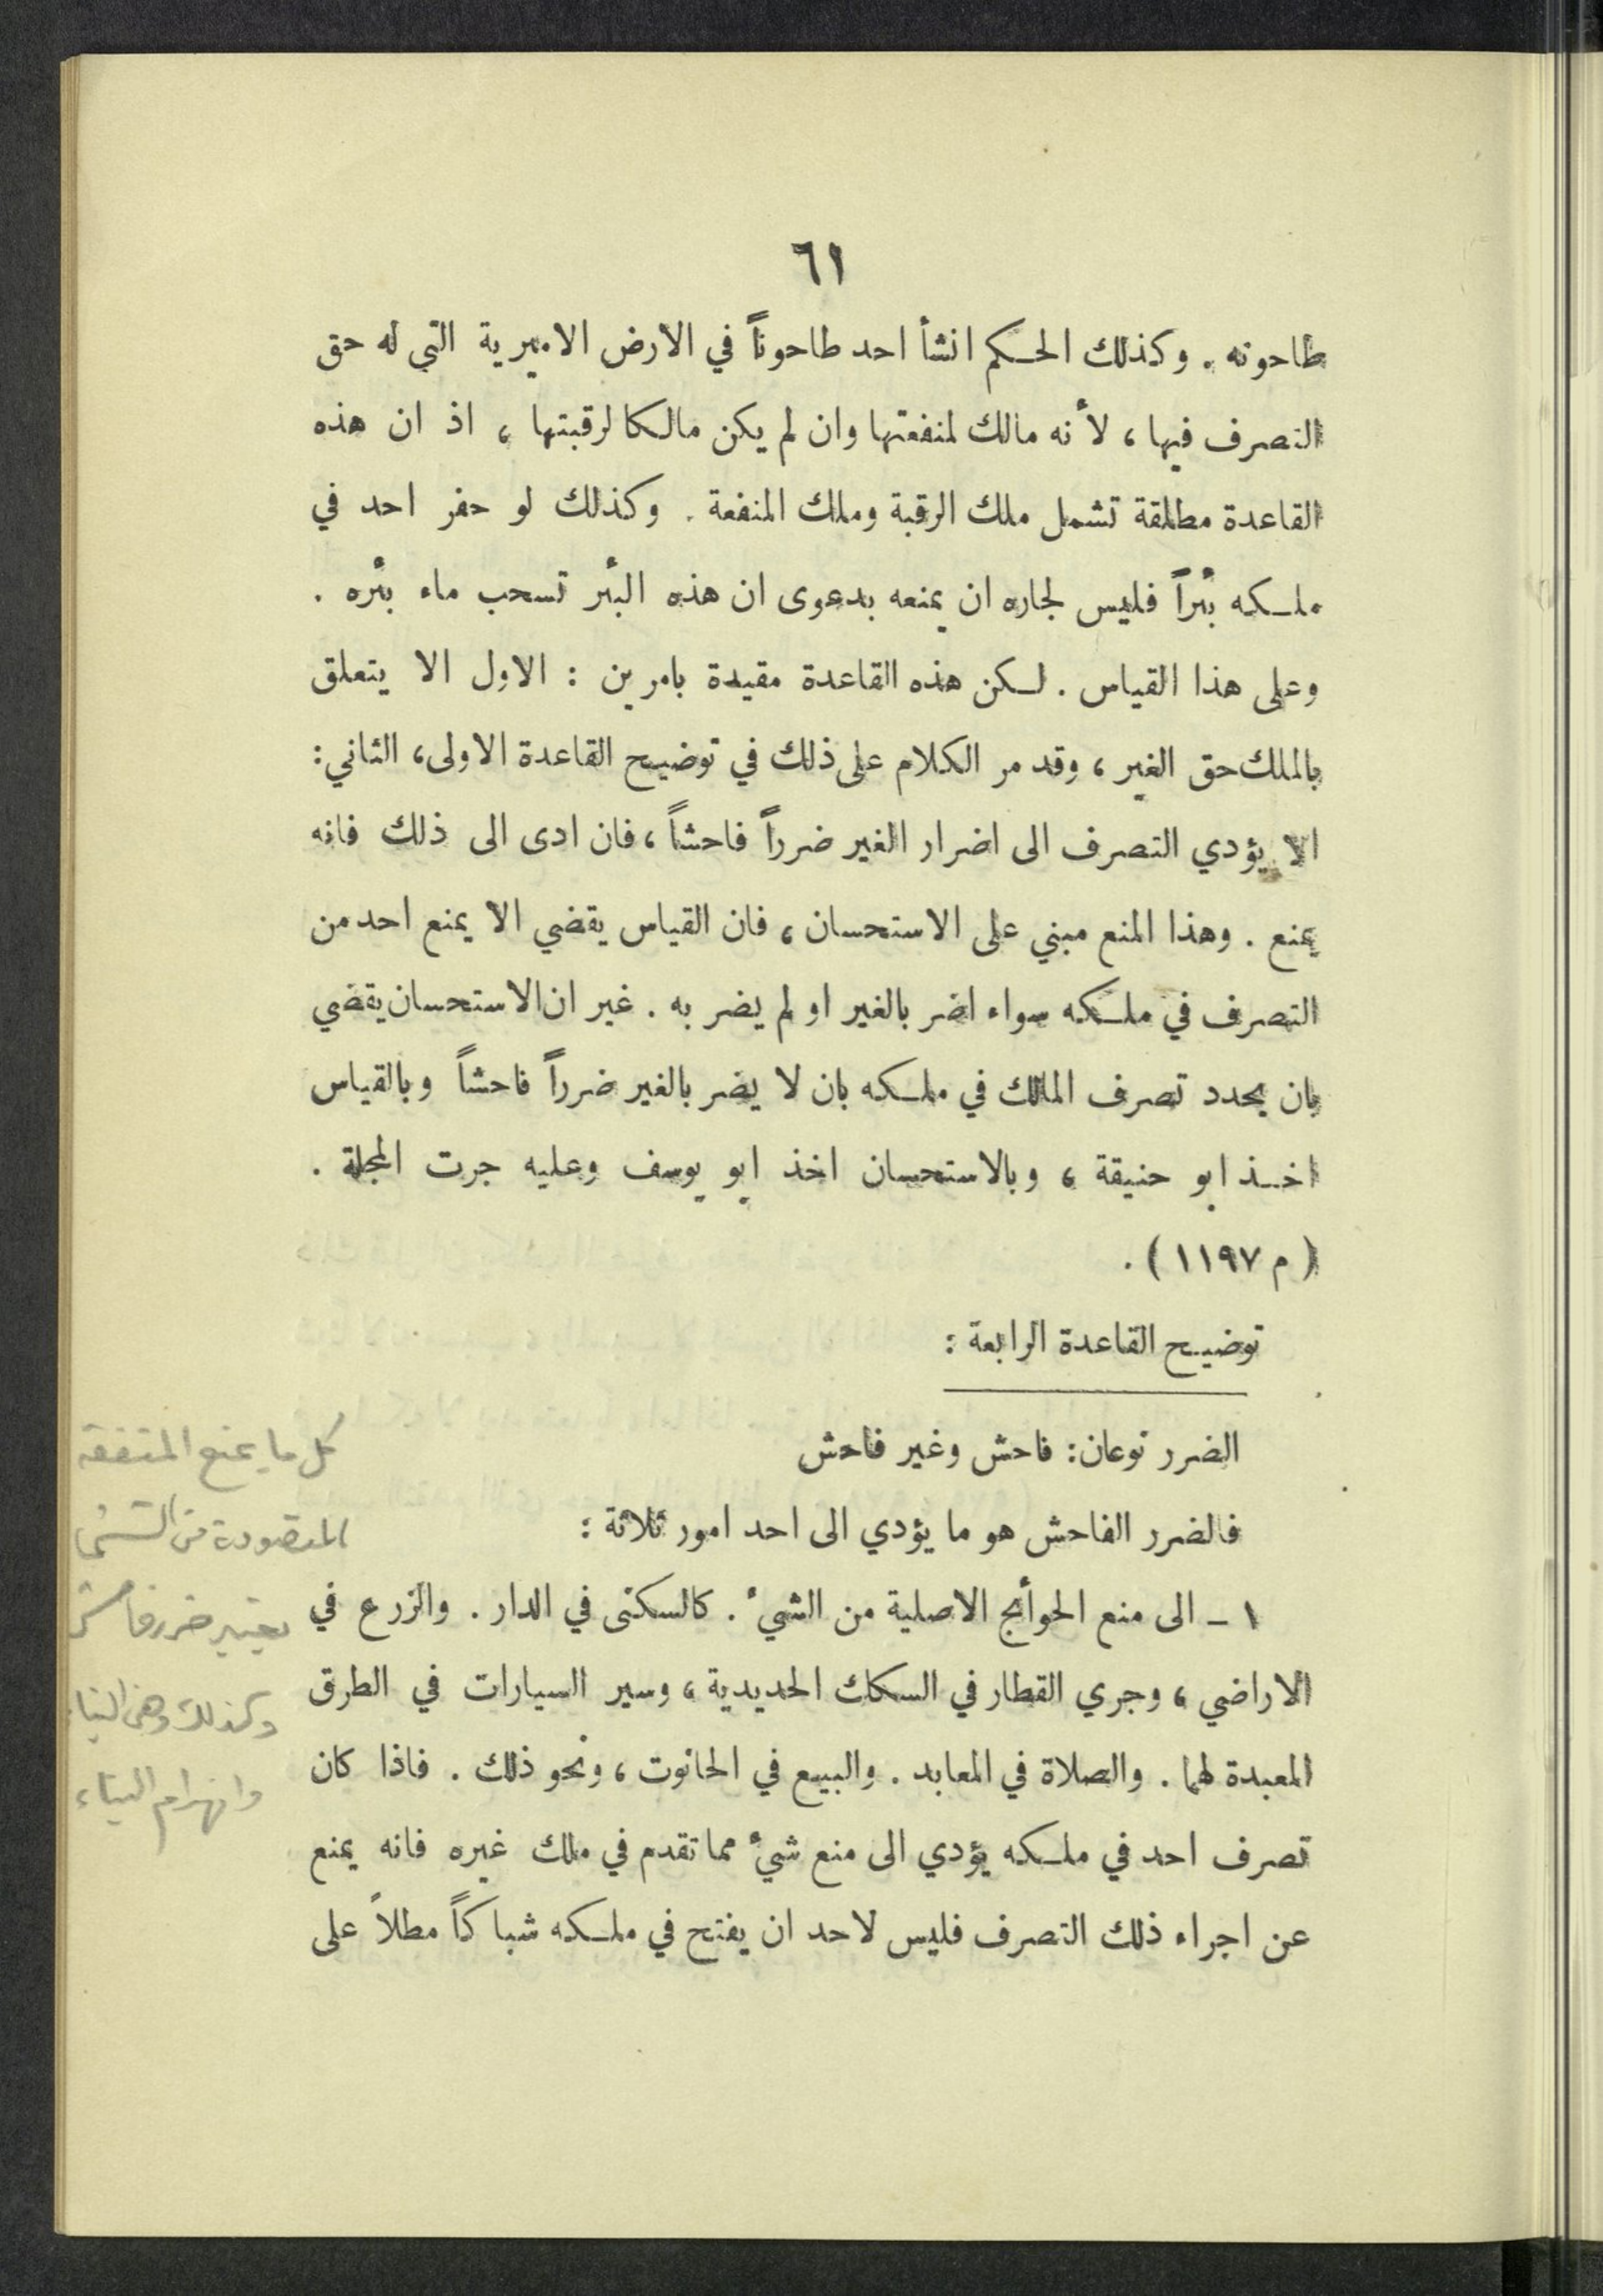 ٦١
طاحونه . وكذلك الحكم انشأ احد طاحوناً في الارض الاميرية التي له حق
التصرف فيها ، لأنه مالك لمنفعتها وان لم يكن مالكا لرقبتها ، اذ ان هذه
القاعدة مطلقة تشمل ملك الرقبة وملك المنفعة . وكذلك لو حفر احد في
ملكه بئراً فليس لجاره ان يمنعه بدعوى ان هذه البئر تسحب ماء بئره .
وعلى هذا القياس . لكن هذه القاعدة مقيدة بامرين : الاول الا يتعلق
بالملك حق الغير ، وقد مر الكلام على ذلك في توضيح القاعدة الاولى ، الثاني :
الا يؤدي التصرف الى اضرار الغير ضرراً فاحشاً ، فان ادى الى ذلك فانه
يمنع . وهذا المنع مبني على الاستحسان ، فان القياس يقضي الا يمنع احد من
التصرف في ملكه سواء اضر بالغير او لم يضر به . غير ان الاستحسان يقضي
بان يحدد تصرف المالك في ملكه بان لا يضر بالغير ضرراً فاحشاً وبالقياس
اخذ ابو حنيقة ، وبالاستحسان اخذ ابو يوسف وعليه جرت المجلة .
( م ١١٩٧ ) .
توضيح القاعدة الرابعة :
الضرر نوعان : فاحش وغير فاحش
فالضرر الفاحش هو ما يؤدي الى احد امور ثلاثة :
١ - الى منع الحوأئج الاصلية من الشيء . كالسكنى في الدار . والزرع في
الاراضي ، وجري القطار في السكك الحديدية ، وسير السيارات في الطرق
المعبدة لهما . والصلاة في المعابد . والبيع في الحانوت ، ونحو ذلك . فاذا كان
تصرف احد في ملكه يؤدي الى منع شيء مما تقدم في ملك غيره فانه يمنع
عن اجراء ذلك التصرف فليس لاحد ان يفتح في ملكه شباكاً مطلاً على
كل ما يمنع المنفعة
المقصودة من الشيء
يعتبر ضرر فاحش
وكذلك وهن البناء
وانهرام البناء